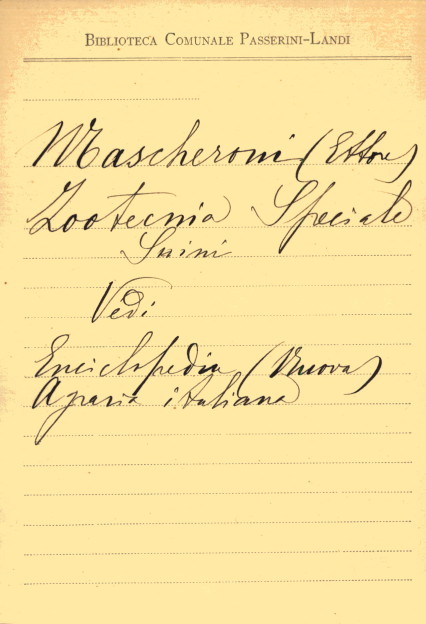 BIBLIOTECA COMUNALE PASSERINI-LANDI
Mascheroni (Ettore)
Zootecnia Speciale
Suini
Vedi
Enciclopedia (Nuova)
Agraria italiana